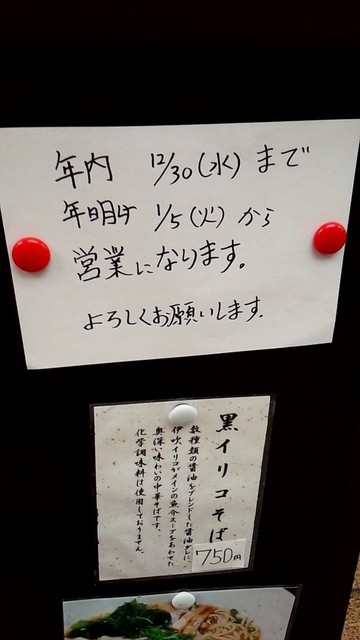 年内 12/30(水)まで
年明け 1/5(火)から
営業になります。
よろしくお願いします。
黒イリコそば
750円
数種類の醤油をブレンドした醤油ダレに、
伊吹イリコがメインの魚介スープをあわせた
奥深い味わいの中華そばです。
化学調味料は使用しておりません。